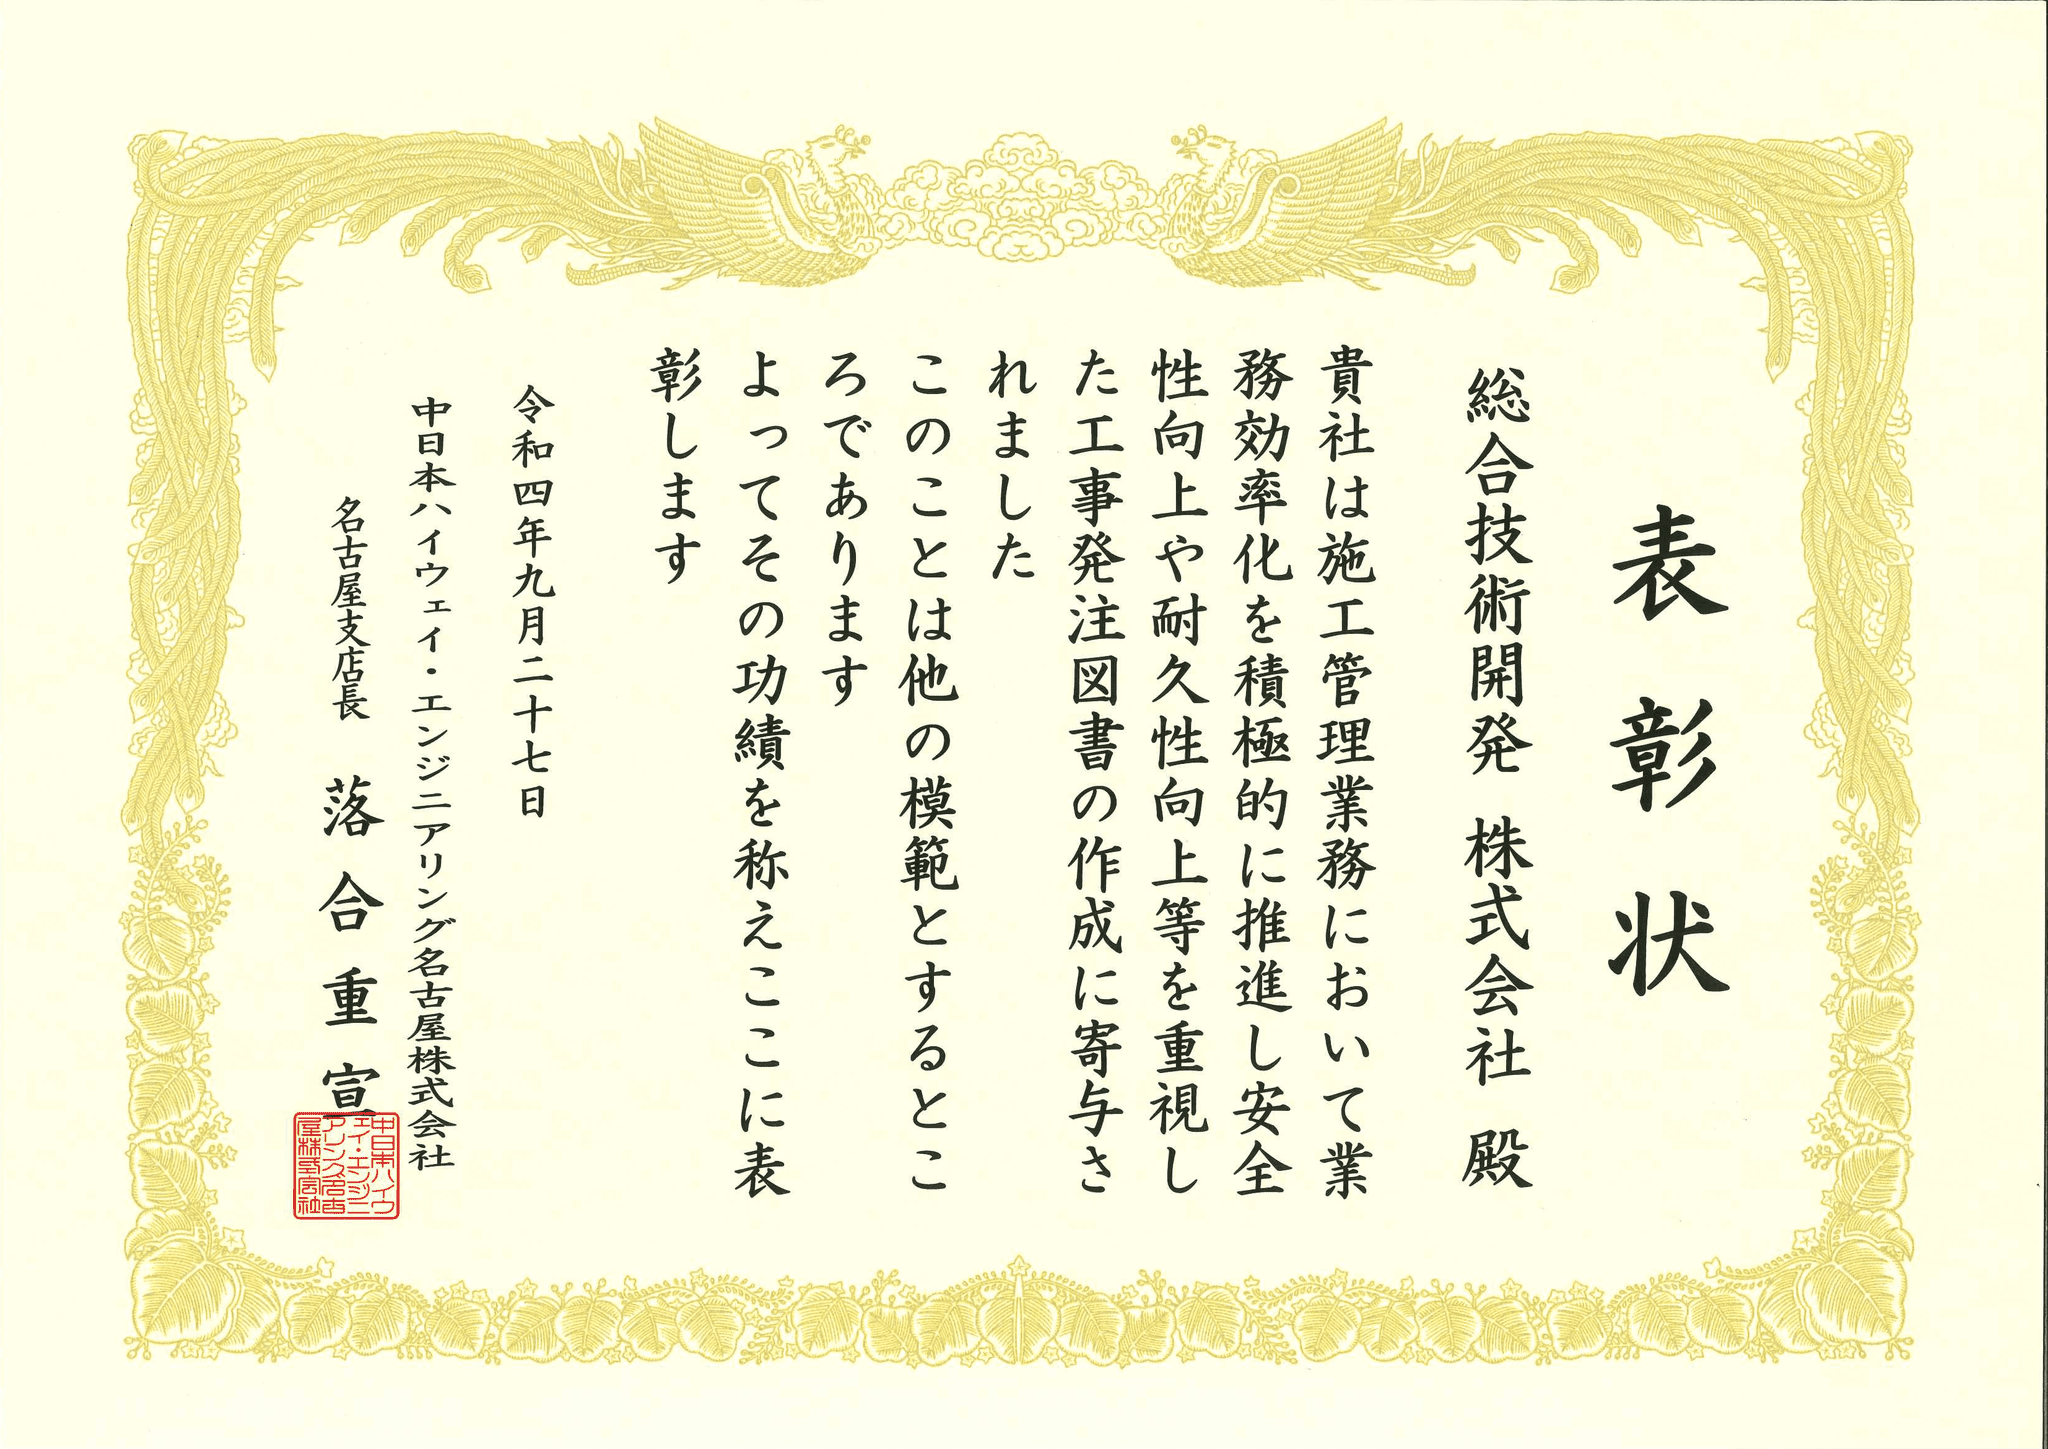 表彰状
総合技術開発 株式会社 殿
貴社は施工管理業務において業
務効率化を積極的に推進し安全
性向上や耐久性向上等を重視し
た工事発注図書の作成に寄与さ
れました
このことは他の模範とするとこ
ろであります
よってその功績を称えここに表
彰します
令和四年九月二十七日
中日本ハイウェイ・エンジニアリング名古屋株式会社
名古屋支店長 落合重宣
中日本ハイウ
ェイ・エンジニ
アリング名古
屋株式会社